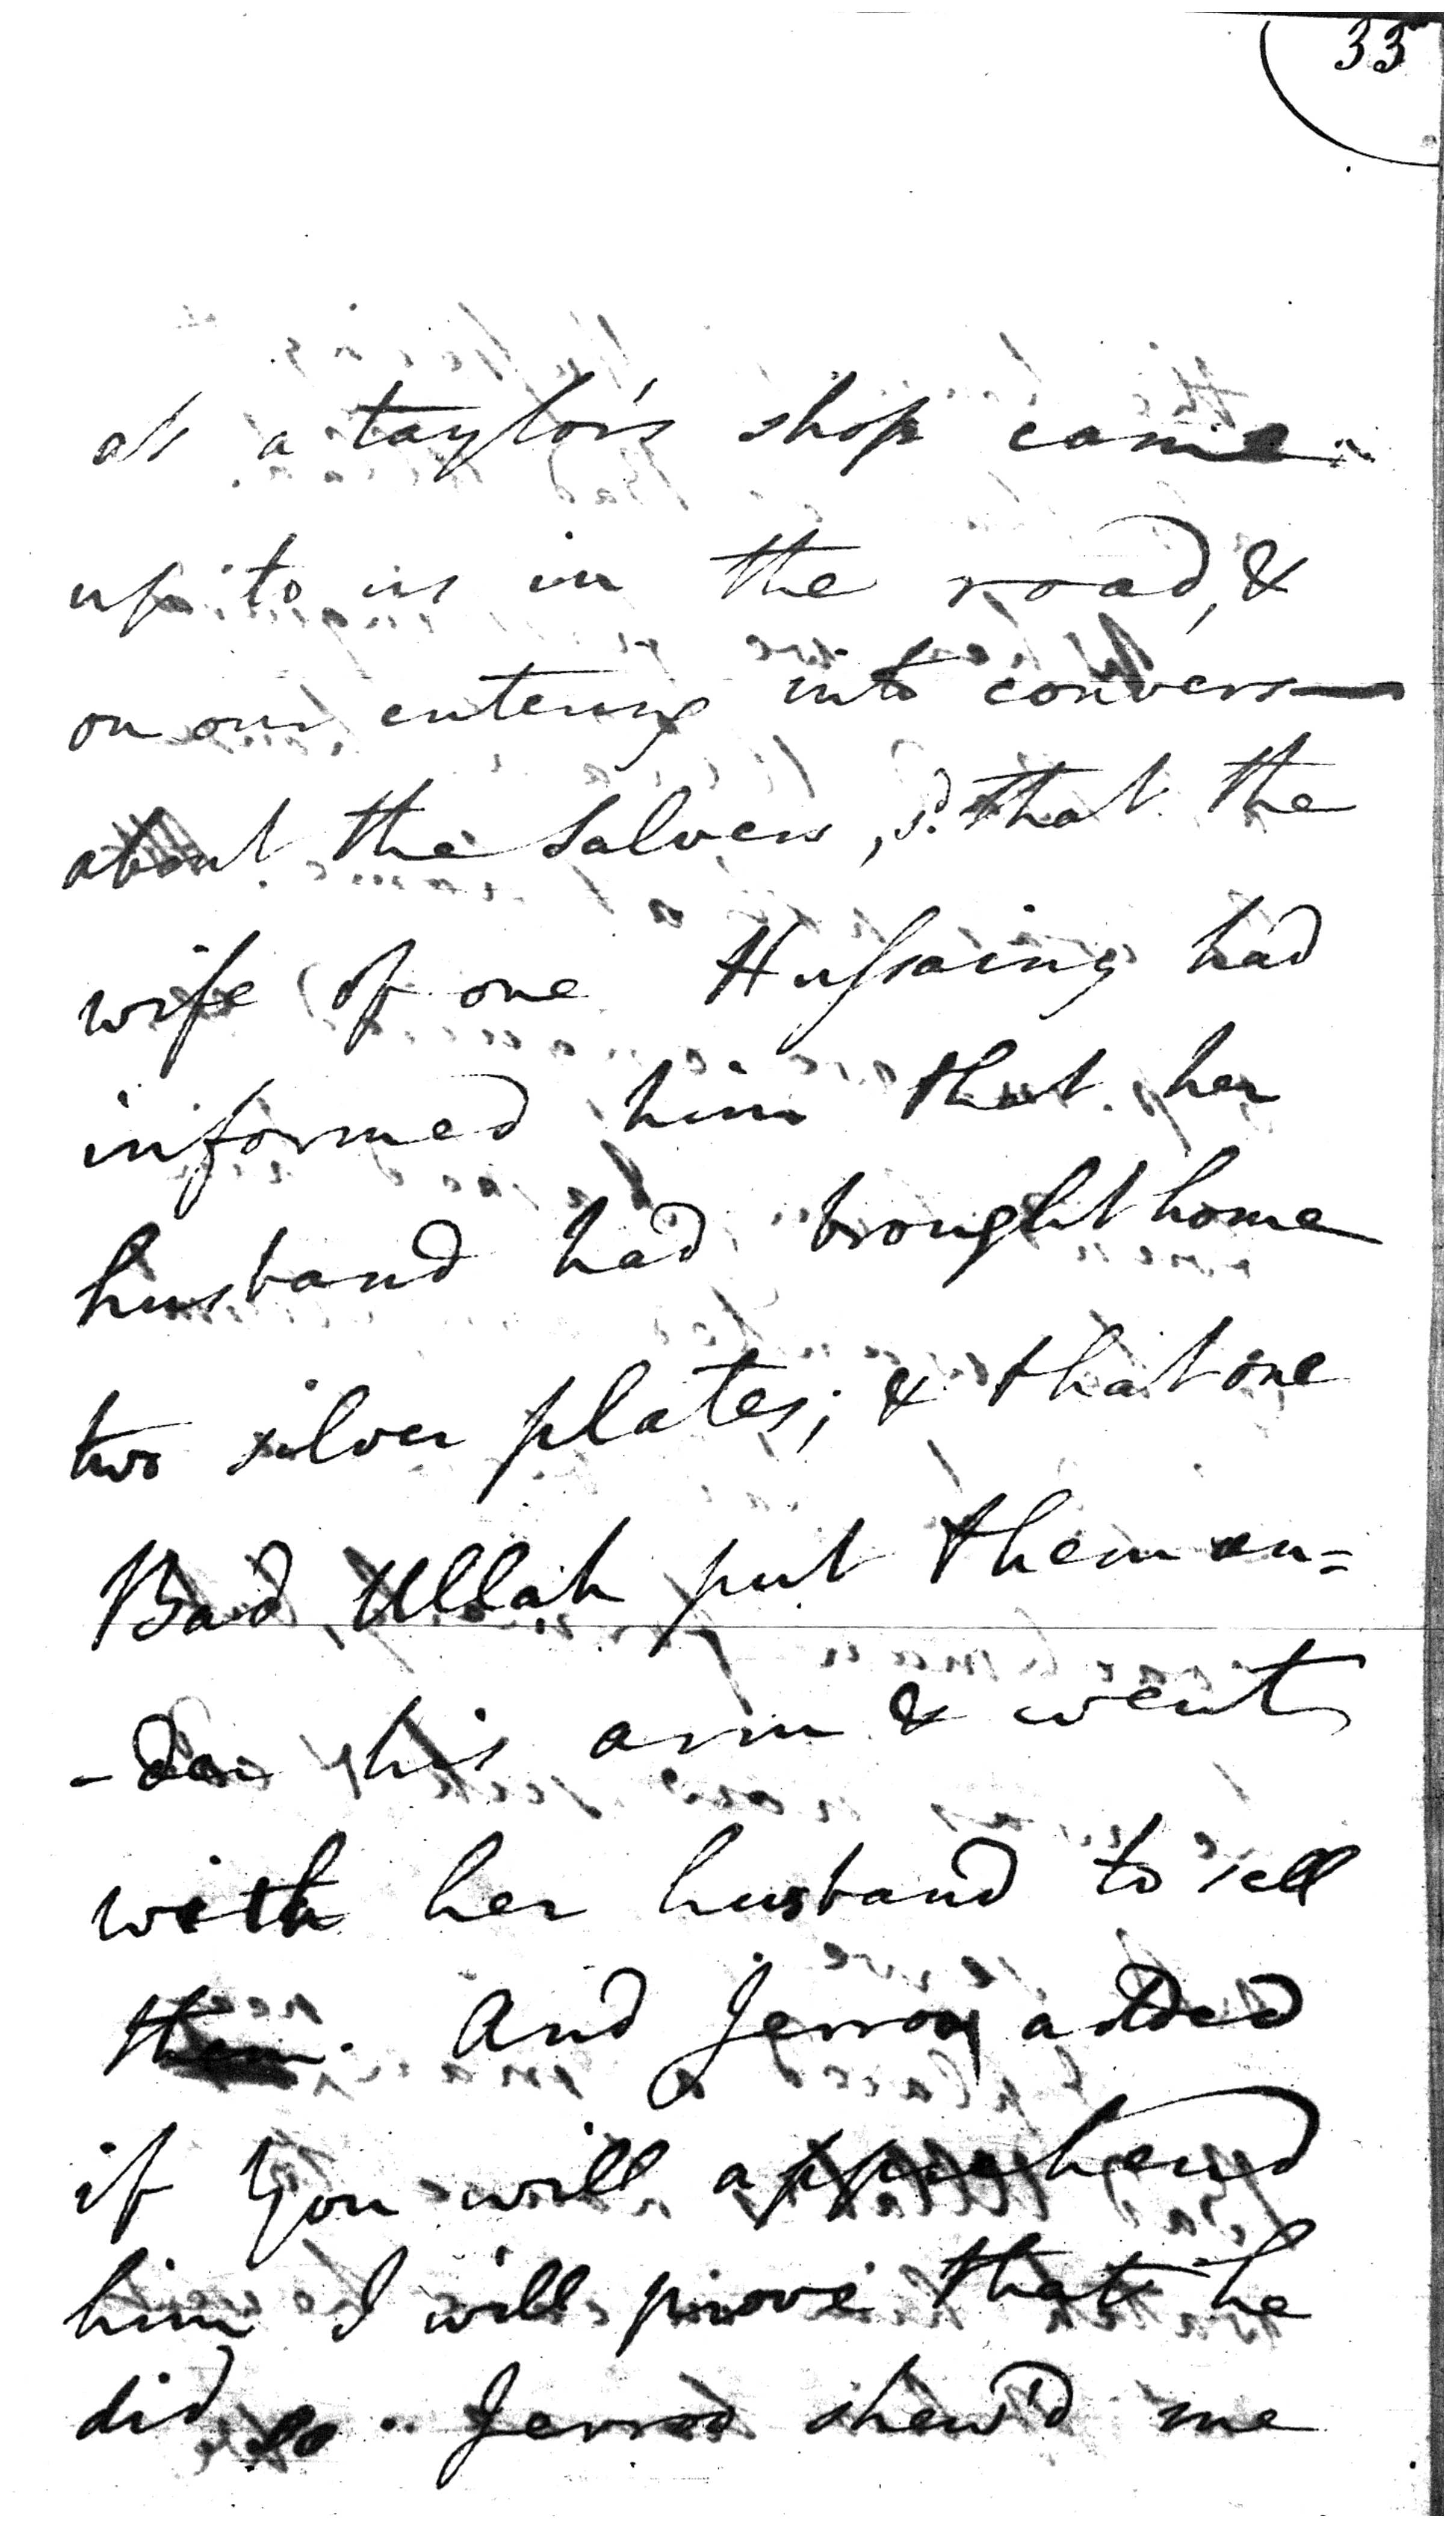 33
at a taylor's shop came
up to us in the road, &
on our entering into convers—
about the Salvers, s.d that the
wife of one Hussaing had
informed him that her
husband had brought home
two silver plates; & that one
Bad Ullah put them un=
-der his arm & went
with her husband to sell
them. And added
if you will apprehend
him I will prove that he
did so. shew'd me